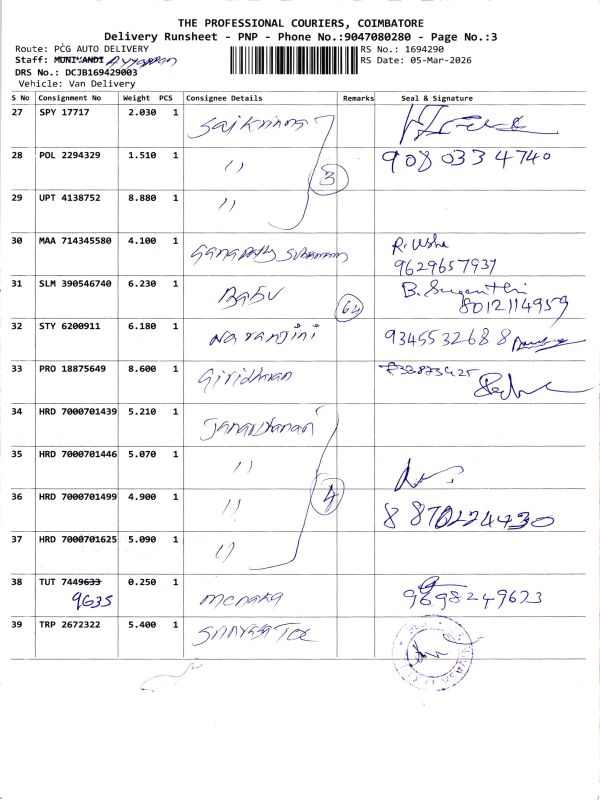 THE PROFESSIONAL COURIERS, COIMBATORE
Delivery Runsheet - PNP - Phone No.:9047080280 - Page No.:3
Route: PCG AUTO DELIVERY
RS No.: 1694290
Staff: MUNIYANDI Ayyappan
RS Date: 05-Mar-2026
DRS No.: DCJB169429003
Vehicle: Van Delivery
S No Consignment No Weight PCS Consignee Details Remarks Seal & Signature
27 SPY 17717 2.030 1
28 POL 2294329 1.510 1 " 9080334740
29 UPT 4138752 8.880 1 " 3
30 MAA 714345580 4.100 1 R. Usha
9629657937
31 SLM 390546740 6.230 1 Babu 64 B. Suganthi
8012114959
32 STY 6200911 6.180 1 Naranjini 9345532688
33 PRO 18875649 8.600 1 Giridharan
34 HRD 7000701439 5.210 1 Janarthanan
35 HRD 7000701446 5.070 1 "
36 HRD 7000701499 4.900 1 " 4 8870224430
37 HRD 7000701625 5.090 1 "
38 TUT 7449633 0.250 1
9635 menaka 9698249623
39 TRP 2672322 5.400 1